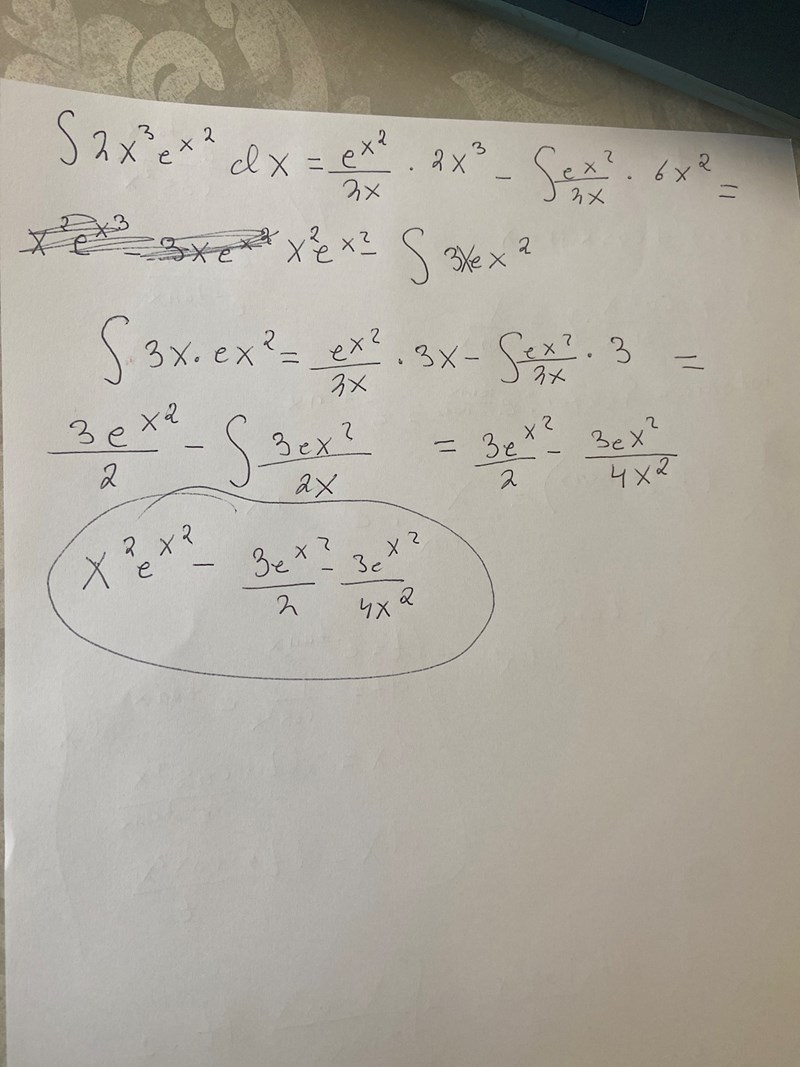 ∫ 2x³e^x² dx = e^x²/2x · 2x³ - ∫ ex²/2x · 6x² =
x²e^x² - ∫ 3xex²
∫ 3x · ex² = ex²/2x · 3x - ∫ ex²/2x · 3 =
3e^x²/2 - ∫ 3ex²/2x = 3e^x²/2 - 3ex²/4x²
x²e^x² - 3e^x²/2 - 3e^x²/4x²